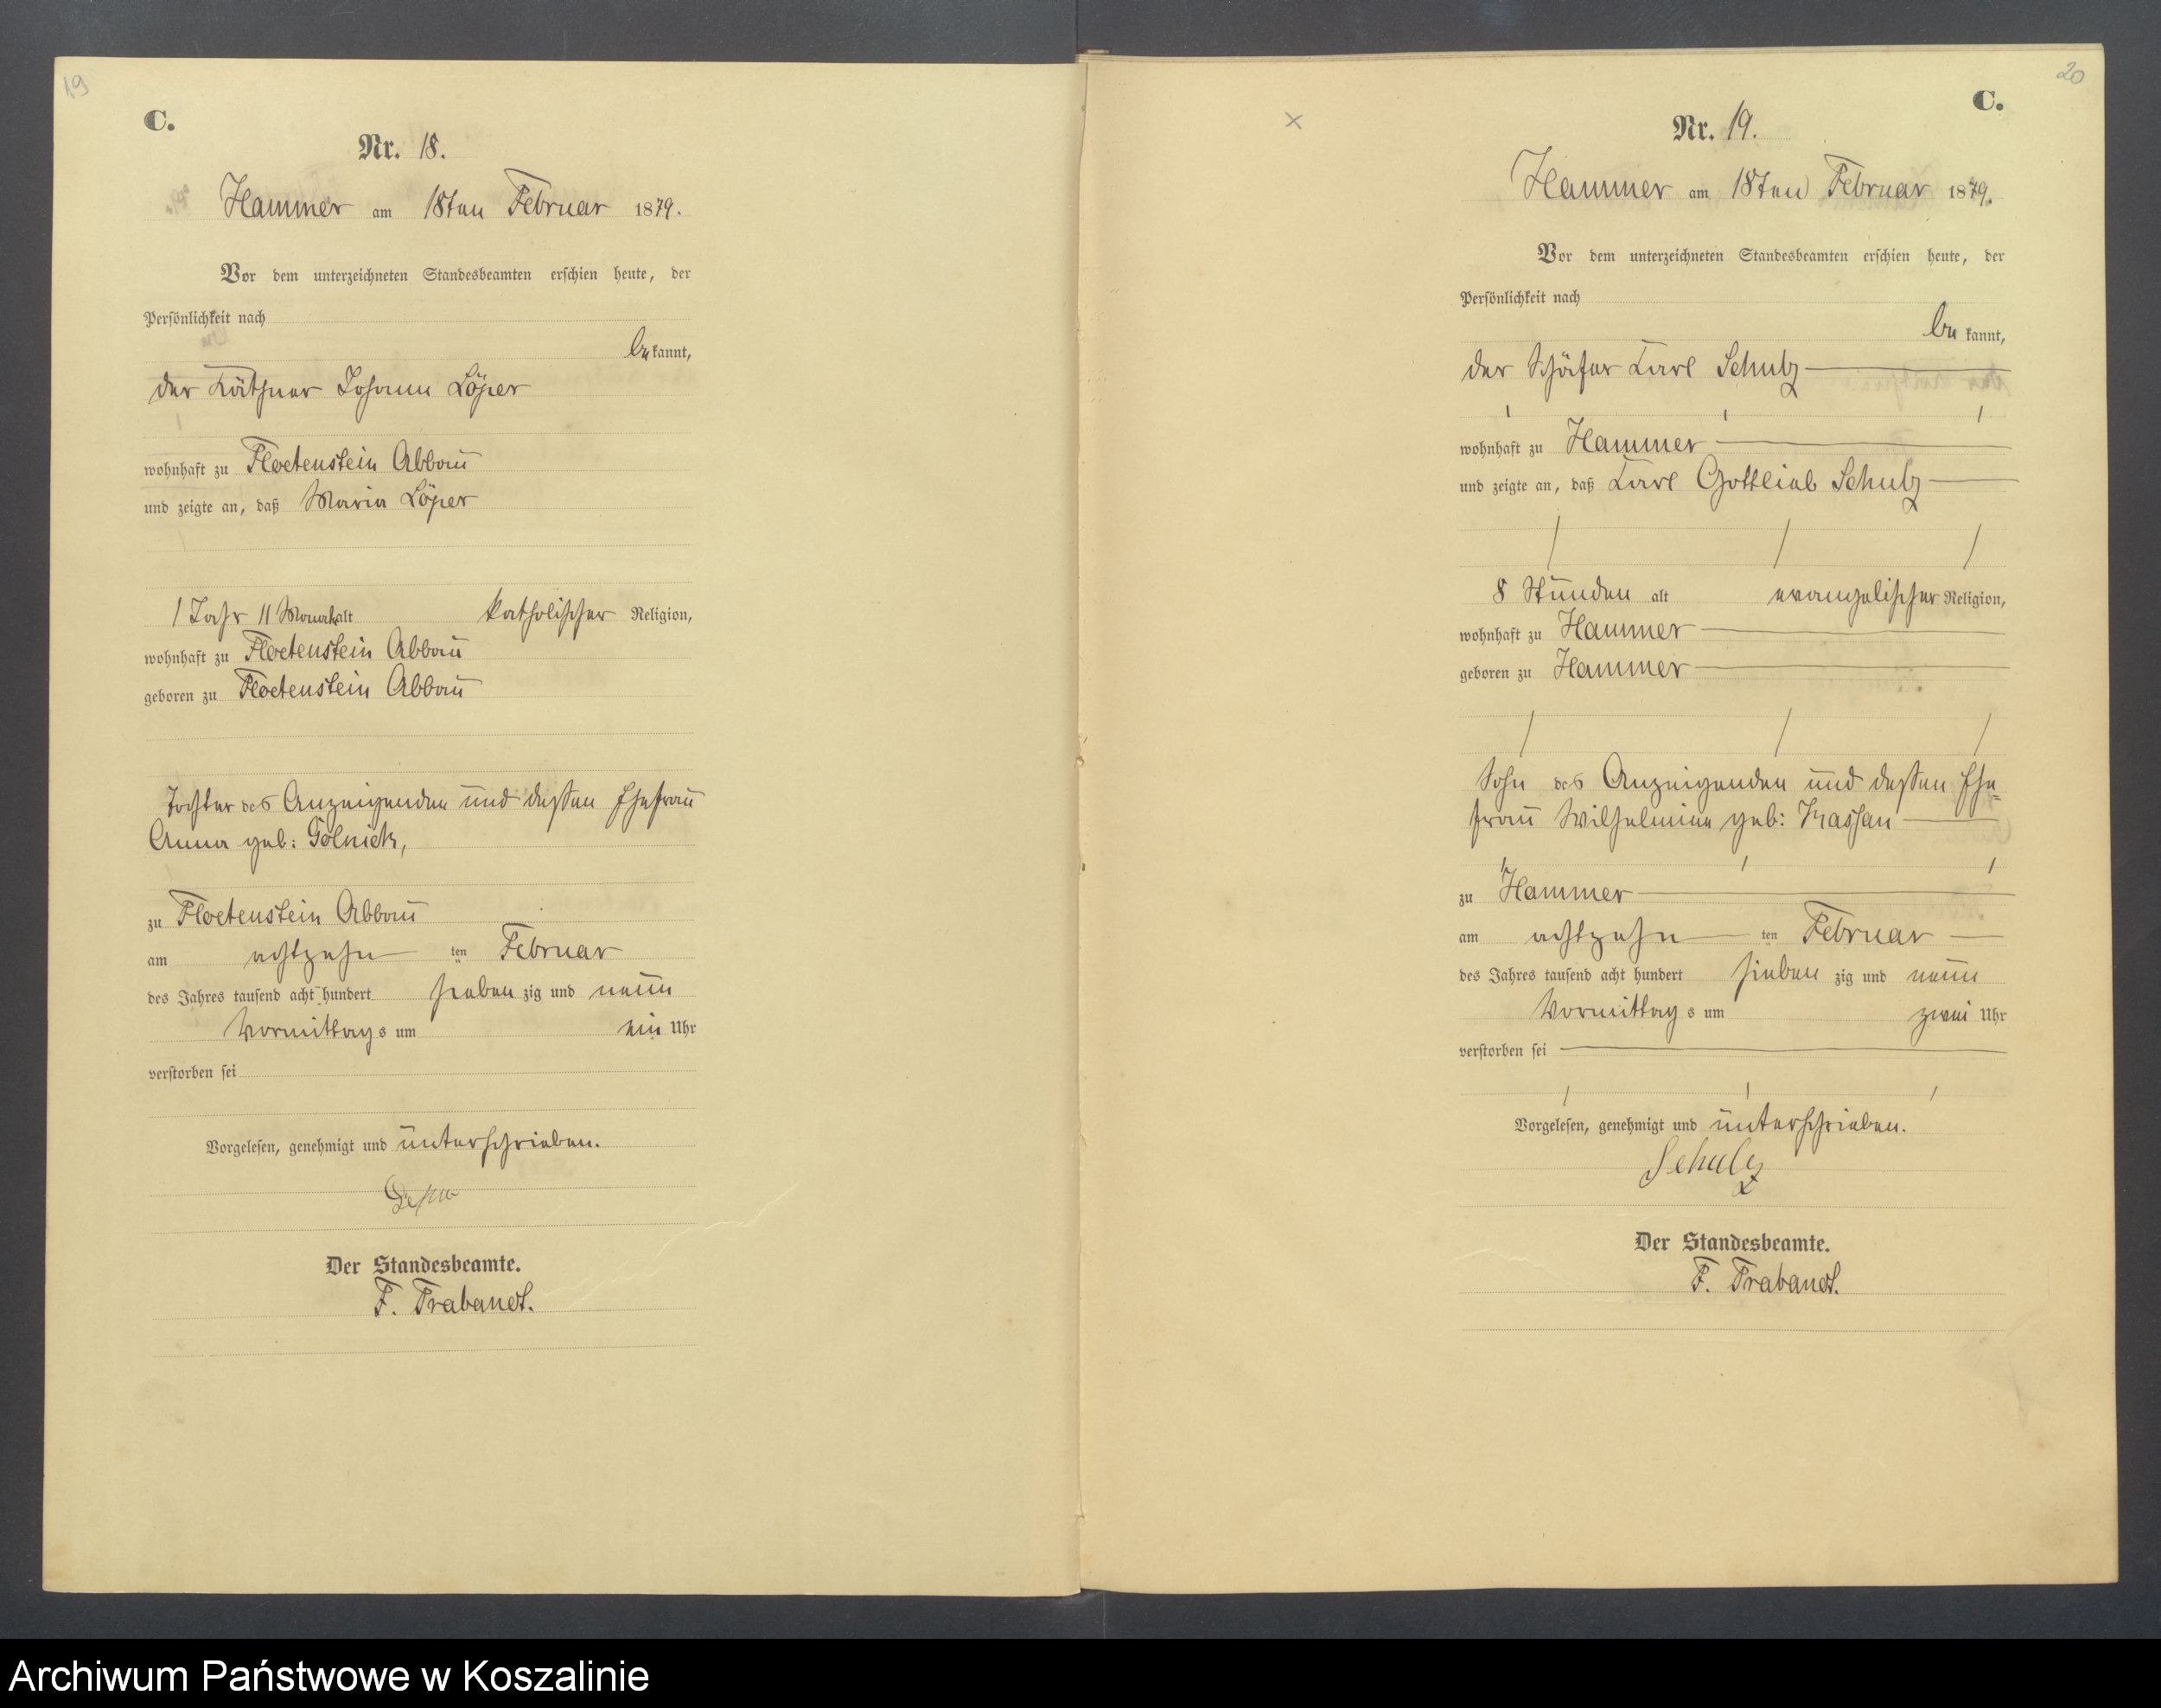 19
C.
Nr. 18.
Hammer am 18ten Februar 1879.
Vor dem unterzeichneten Standesbeamten erschien heute, der
Persönlichkeit nach
bekannt,
der Käthner Johann Löper
wohnhaft zu Floetenstein Abbau
und zeigte an, daß Maria Löper
1 Jahr 11 Monat alt katholischer Religion,
wohnhaft zu Floetenstein Abbau
geboren zu Floetenstein Abbau
Tochter des Anzeigenden und dessen Ehefrau
Anna geb: Golnick,
zu Floetenstein Abbau
am achtzehn ten Februar
des Jahres tausend acht hundert sieben zig und neun
Vormittags um ein Uhr
verstorben sei
Vorgelesen, genehmigt und unterschrieben.
Der Standesbeamte.
F. Trabandt.
20
C.
Nr. 19.
Hammer am 18ten Februar 1879.
Vor dem unterzeichneten Standesbeamten erschien heute, der
Persönlichkeit nach
bekannt,
der Schäfer Karl Schulz
wohnhaft zu Hammer
und zeigte an, daß Karl Gottlieb Schulz
8 Stunden alt evangelischer Religion,
wohnhaft zu Hammer
geboren zu Hammer
Sohn des Anzeigenden und dessen Ehe=
frau Wilhelmine geb: Kassan
zu Hammer
am achtzehn ten Februar
des Jahres tausend acht hundert sieben zig und neun
Vormittags um zwei Uhr
verstorben sei
Vorgelesen, genehmigt und unterschrieben.
Schulz
Der Standesbeamte.
F. Trabandt.
Archiwum Państwowe w Koszalinie